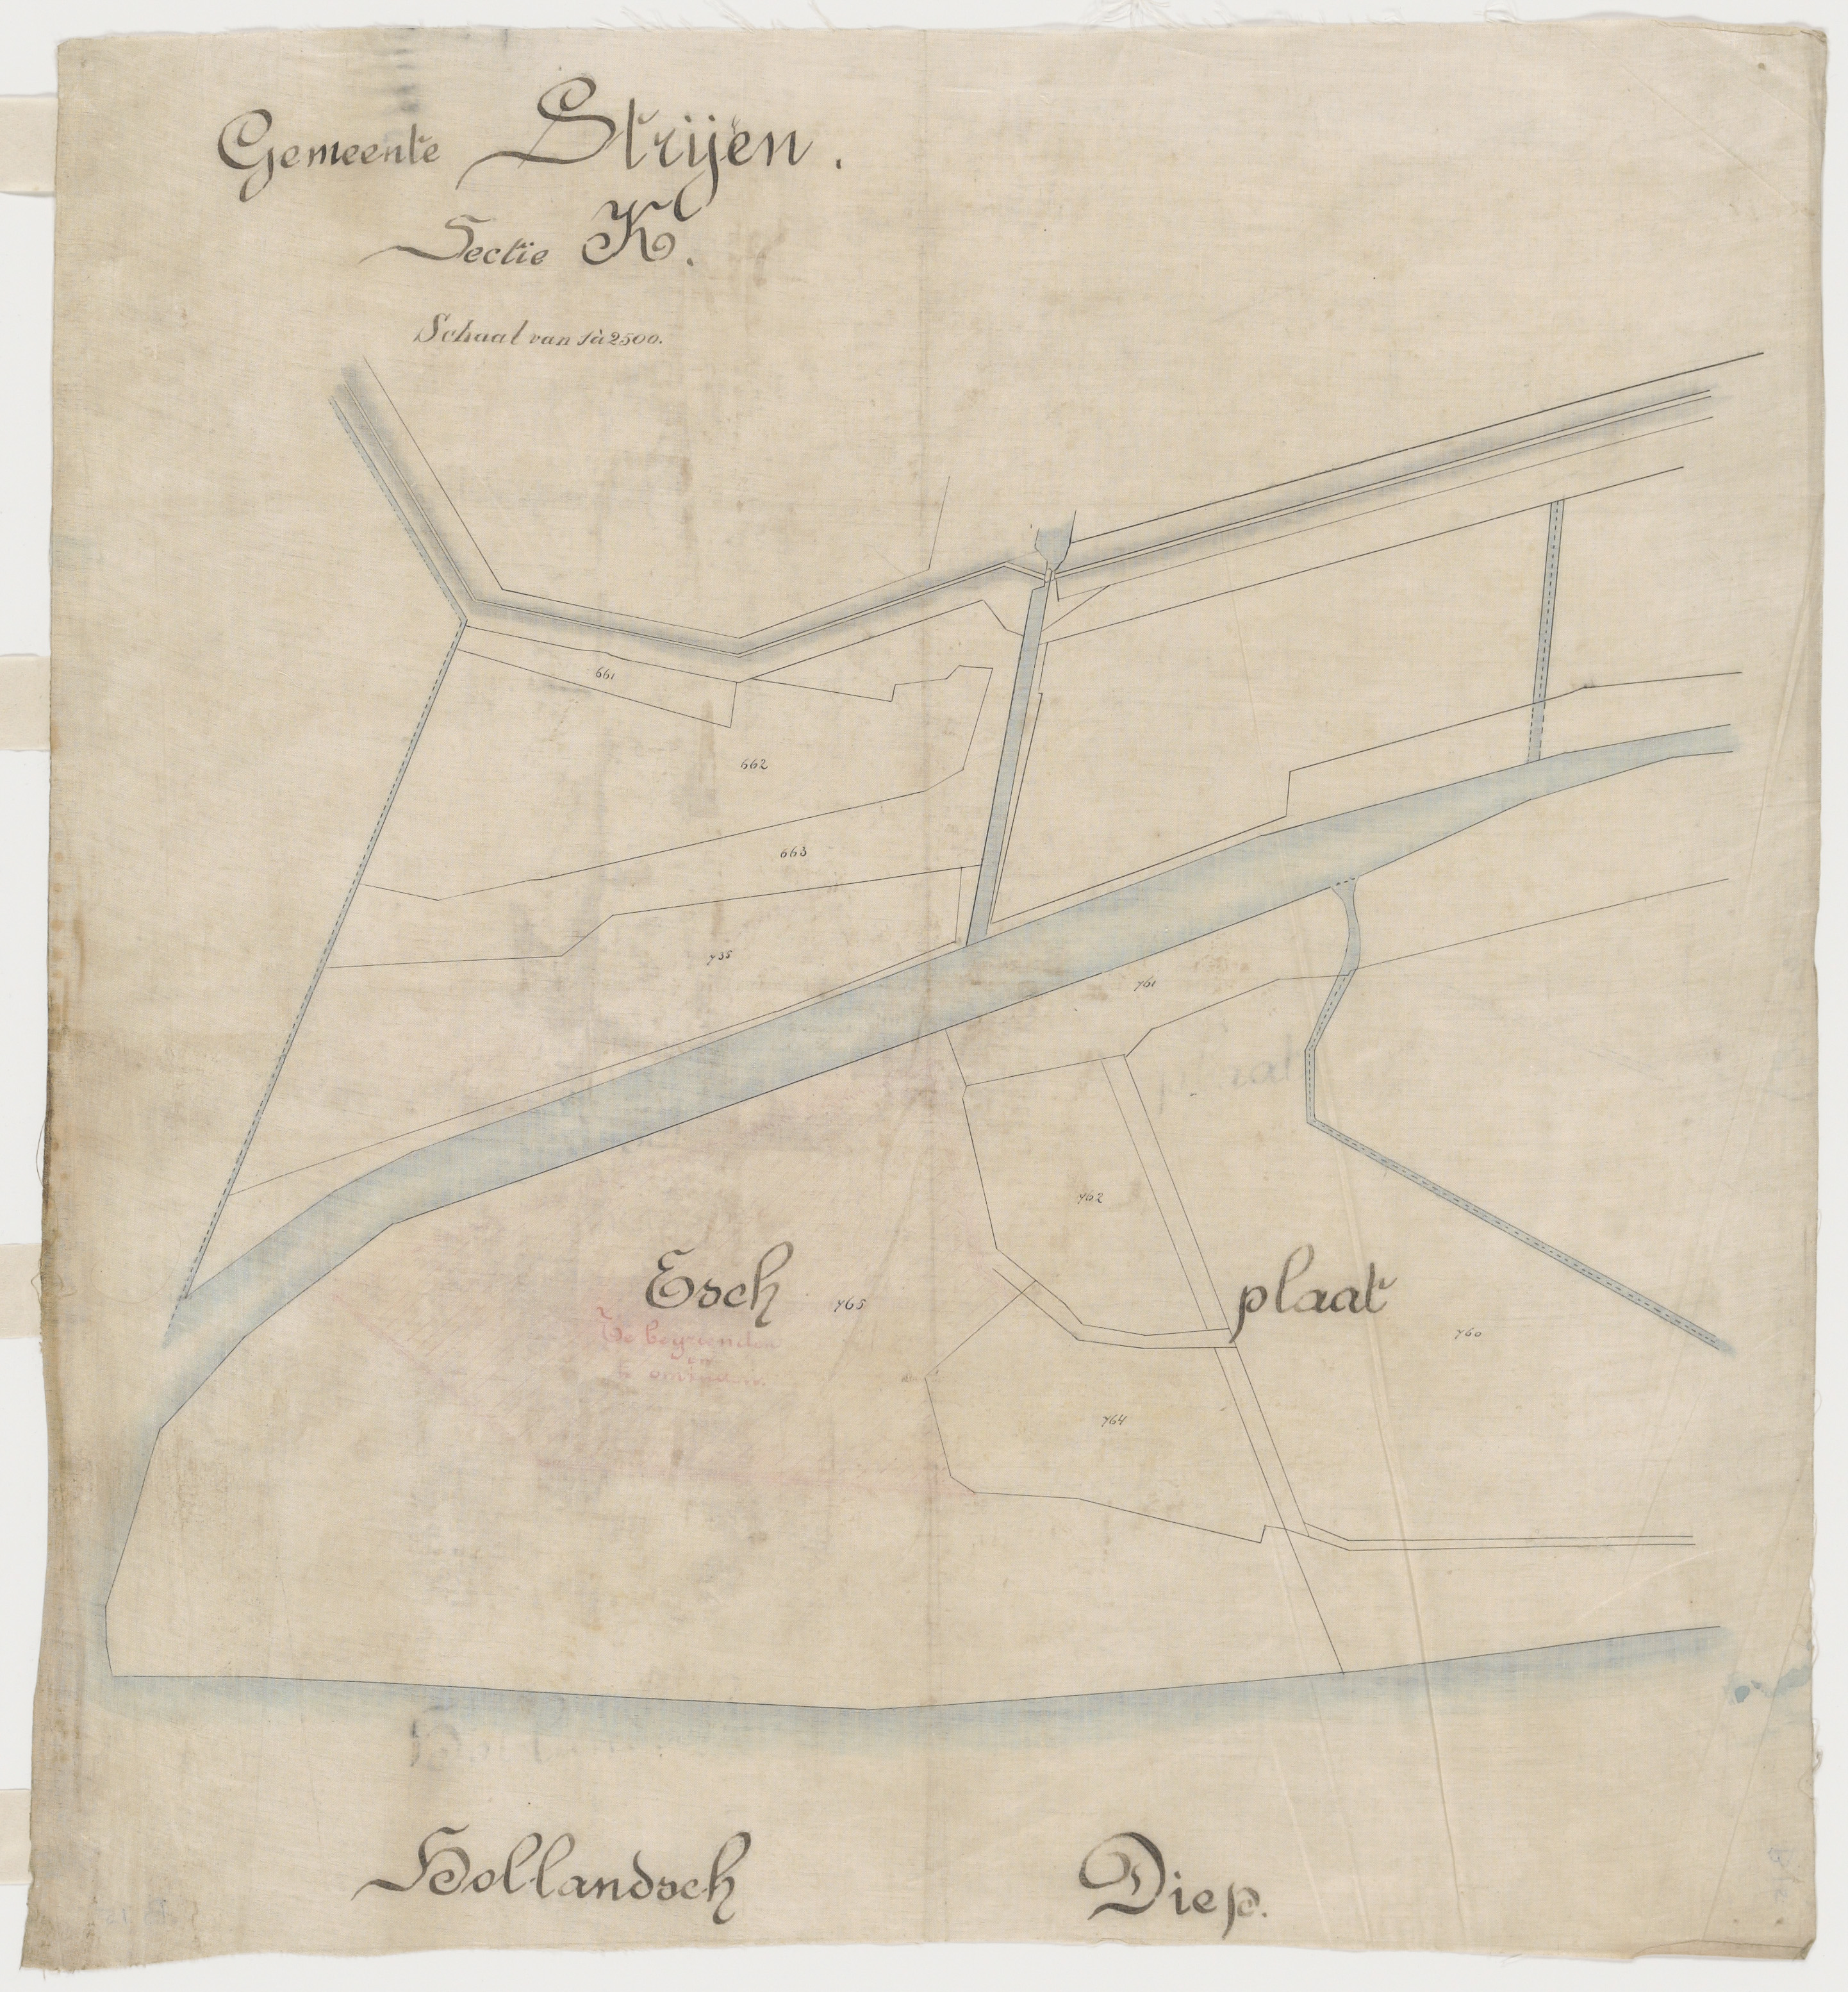 Gemeente Strijen.
Sectie K.
Schaal van 1 à 2500.
661
662
663
735
761
762
Esch plaat
765
760
Te begrinden
en
764
Hollandsch Diep.